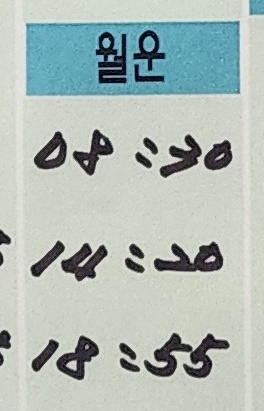 월운
08:30
14:20
18:55